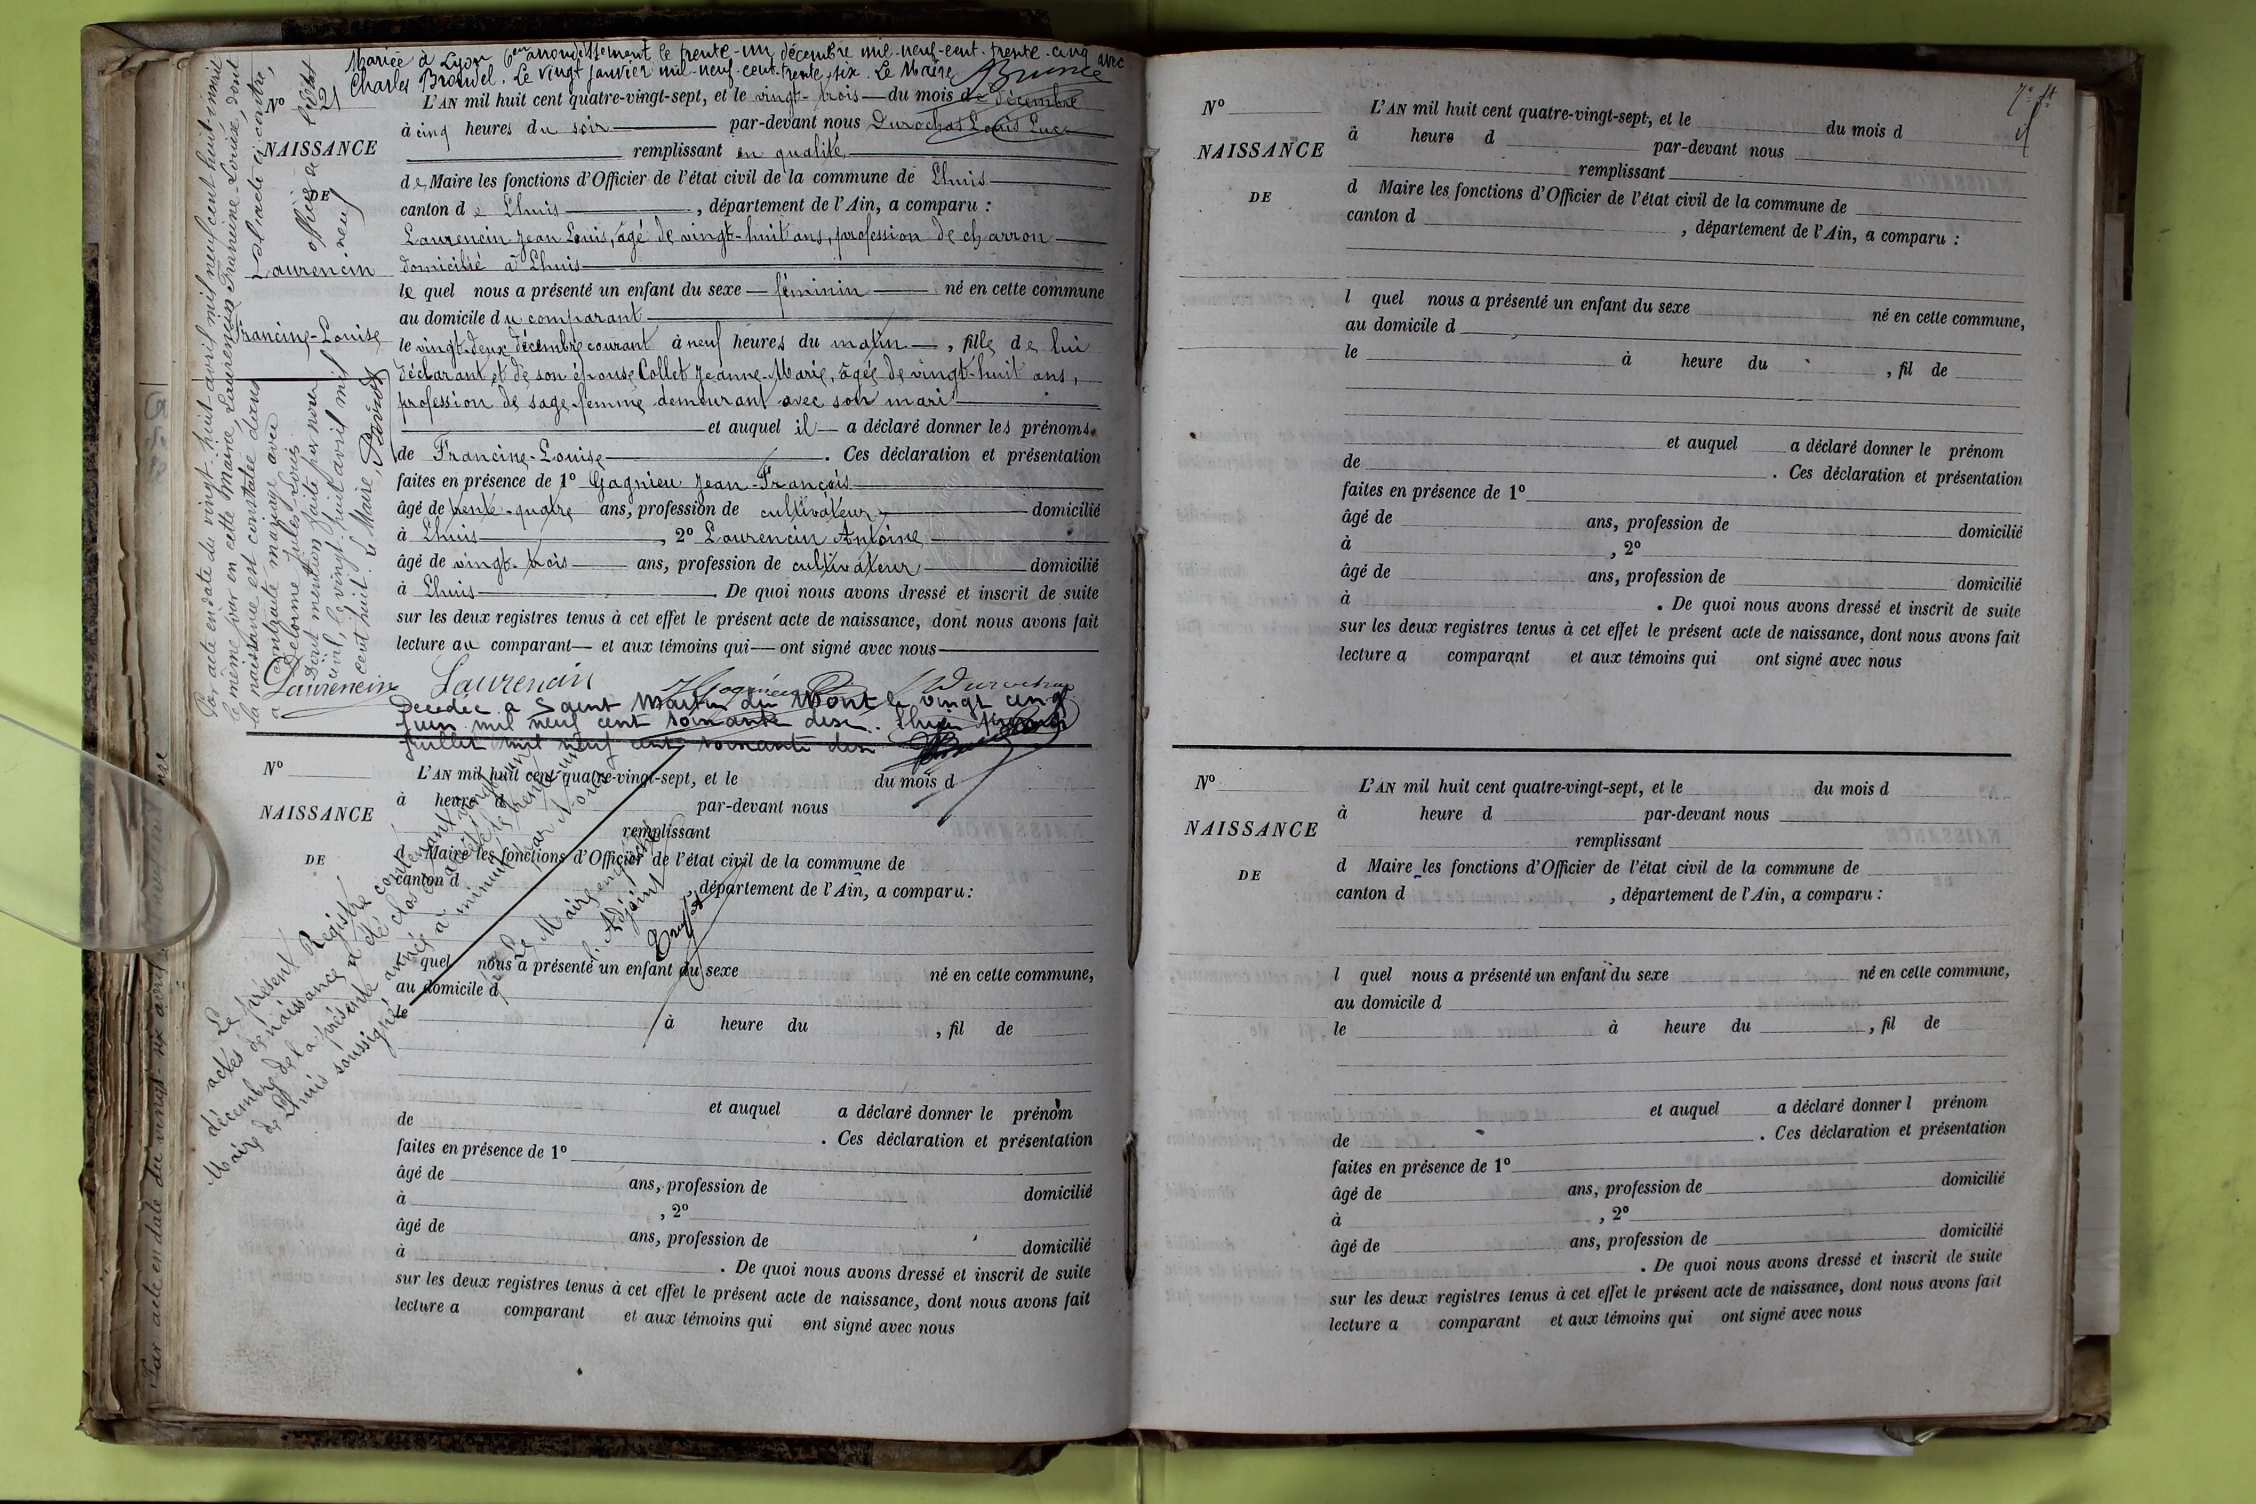 Mariée à Lyon 6em arrondissement le trente-un décembre mil-neuf-cent-trente-cinq avec
Charles Broudel. Le vingt janvier mil-neuf-cent-trente-six. Le Maire
N° 21
L'AN mil huit cent quatre-vingt-sept, et le vingt-trois du mois de décembre
à cinq heures du soir par-devant nous Durochat Louis Luc
NAISSANCE
remplissant en qualité
de Maire les fonctions d'Officier de l'état civil de la commune de Lhuis
DE
canton de Lhuis, département de l'Ain, a comparu :
Laurencin Jean Louis, âgé de vingt-huit ans, profession de charron
Laurencin
domicilié à Lhuis
le quel nous a présenté un enfant du sexe féminin né en cette commune
au domicile du comparant
Francine-Louise
le vingt-deux décembre courant à neuf heures du matin, fille de lui
déclarant et de son épouse Collet Jeanne-Marie, âgée de vingt-huit ans,
profession de sage-femme demeurant avec son mari
et auquel il a déclaré donner les prénoms
de Francine-Louise. Ces déclaration et présentation
faites en présence de 1° Gagnieu Jean-François
âgé de trente-quatre ans, profession de cultivateur domicilié
à Lhuis, 2° Laurencin Antoine
âgé de vingt-trois ans, profession de cultivateur domicilié
à Lhuis. De quoi nous avons dressé et inscrit de suite
sur les deux registres tenus à cet effet le présent acte de naissance, dont nous avons fait
lecture au comparant et aux témoins qui ont signé avec nous
Laurencin Laurencin Gagnieu Durochat
Décédée à Saint Martin du Mont le vingt cinq
juin mil neuf cent soixante dix. Lhuis
juillet mil neuf cent soixante dix
Par acte en date du vingt-huit avril mil neuf cent huit inscrit
le même jour en cette mairie, Laurencin Francine Louise, dont
la naissance est constatée dans l'acte ci-contre,
a contracté mariage avec
Delorme Jules Louis
Dont mention faite par nous officier de l'état
civil, le vingt-huit avril mil neuf
cent huit. Le Maire
N°
L'AN mil huit cent quatre-vingt-sept, et le du mois d
à heure d par-devant nous
NAISSANCE
remplissant
d Maire les fonctions d'Officier de l'état civil de la commune de
DE
canton d , département de l'Ain, a comparu :
quel nous a présenté un enfant du sexe né en cette commune,
au domicile d
le à heure du , fil de
et auquel a déclaré donner le prénom
de . Ces déclaration et présentation
faites en présence de 1°
âgé de ans, profession de domicilié
à , 2°
âgé de ans, profession de domicilié
à . De quoi nous avons dressé et inscrit de suite
sur les deux registres tenus à cet effet le présent acte de naissance, dont nous avons fait
lecture a comparant et aux témoins qui ont signé avec nous
Le présent Registre contenant vingt un
actes de naissance a été clos et arrêté le trente un
décembre de la présente année à minuit par Nous
Maire de Lhuis soussigné
Le Maire empêché
l'Adjoint
Par acte en date du vingt-six avril mil neuf cent
N°
L'AN mil huit cent quatre-vingt-sept, et le du mois d
à heure d par-devant nous
NAISSANCE
remplissant
d Maire les fonctions d'Officier de l'état civil de la commune de
DE
canton d , département de l'Ain, a comparu :
l quel nous a présenté un enfant du sexe né en cette commune,
au domicile d
le à heure du , fil de
et auquel a déclaré donner le prénom
de . Ces déclaration et présentation
faites en présence de 1°
âgé de ans, profession de domicilié
à , 2°
âgé de ans, profession de domicilié
à . De quoi nous avons dressé et inscrit de suite
sur les deux registres tenus à cet effet le présent acte de naissance, dont nous avons fait
lecture a comparant et aux témoins qui ont signé avec nous
N°
L'AN mil huit cent quatre-vingt-sept, et le du mois d
à heure d par-devant nous
NAISSANCE
remplissant
d Maire les fonctions d'Officier de l'état civil de la commune de
DE
canton d , département de l'Ain, a comparu :
l quel nous a présenté un enfant du sexe né en cette commune,
au domicile d
le à heure du , fil de
et auquel a déclaré donner l prénom
de . Ces déclaration et présentation
faites en présence de 1°
âgé de ans, profession de domicilié
à , 2°
âgé de ans, profession de domicilié
. De quoi nous avons dressé et inscrit de suite
sur les deux registres tenus à cet effet le présent acte de naissance, dont nous avons fait
lecture a comparant et aux témoins qui ont signé avec nous